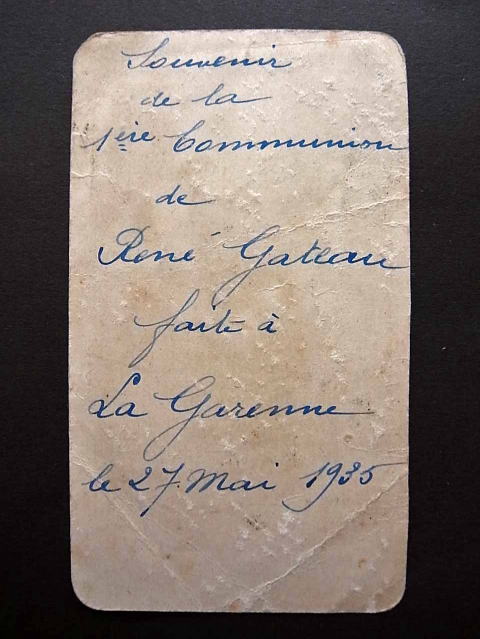 Souvenir
de la
1ère Communion
de
René Gateau
faite à
La Garenne
le 27 Mai 1935